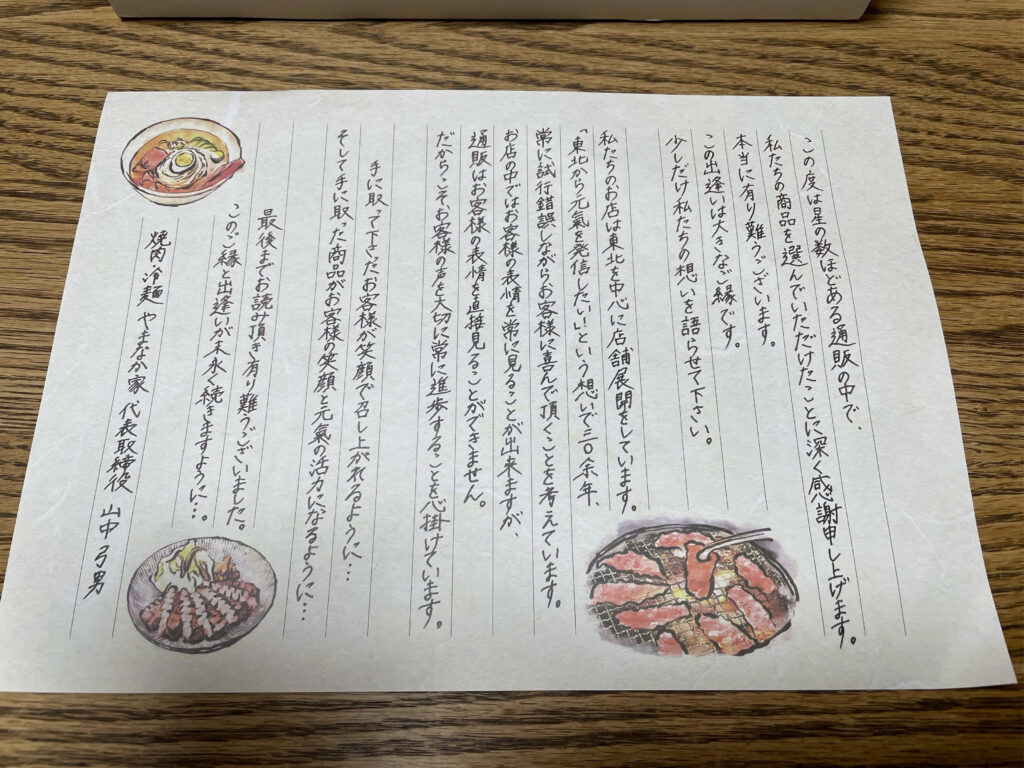 この度は星の数ほどある通販の中で、
私たちの商品を選んでいただけたことに深く感謝申し上げます。
本当に有り難うございます。
この出逢いは大きなご縁です。
少しだけ私たちの想いを語らせて下さい。
私たちのお店は東北を中心に店舗展開をしています。
「東北から元氣を発信したい！」という想いで三〇余年、
常に試行錯誤しながらお客様に喜んで頂くことを考えています。
お店の中ではお客様の表情を常に見ることが出来ますが、
通販はお客様の表情を直接見ることができません。
だからこそ、お客様の声を大切に常に進歩することを心掛けています。
手に取って下さったお客様が笑顔で召し上がれるように…
そして手に取った商品がお客様の笑顔と元氣の活力になるように…
最後までお読み頂き有り難うございました。
このご縁と出逢いが末永く続きますように…。
焼肉 冷麺 やまなか家 代表取締役 山中 弓男